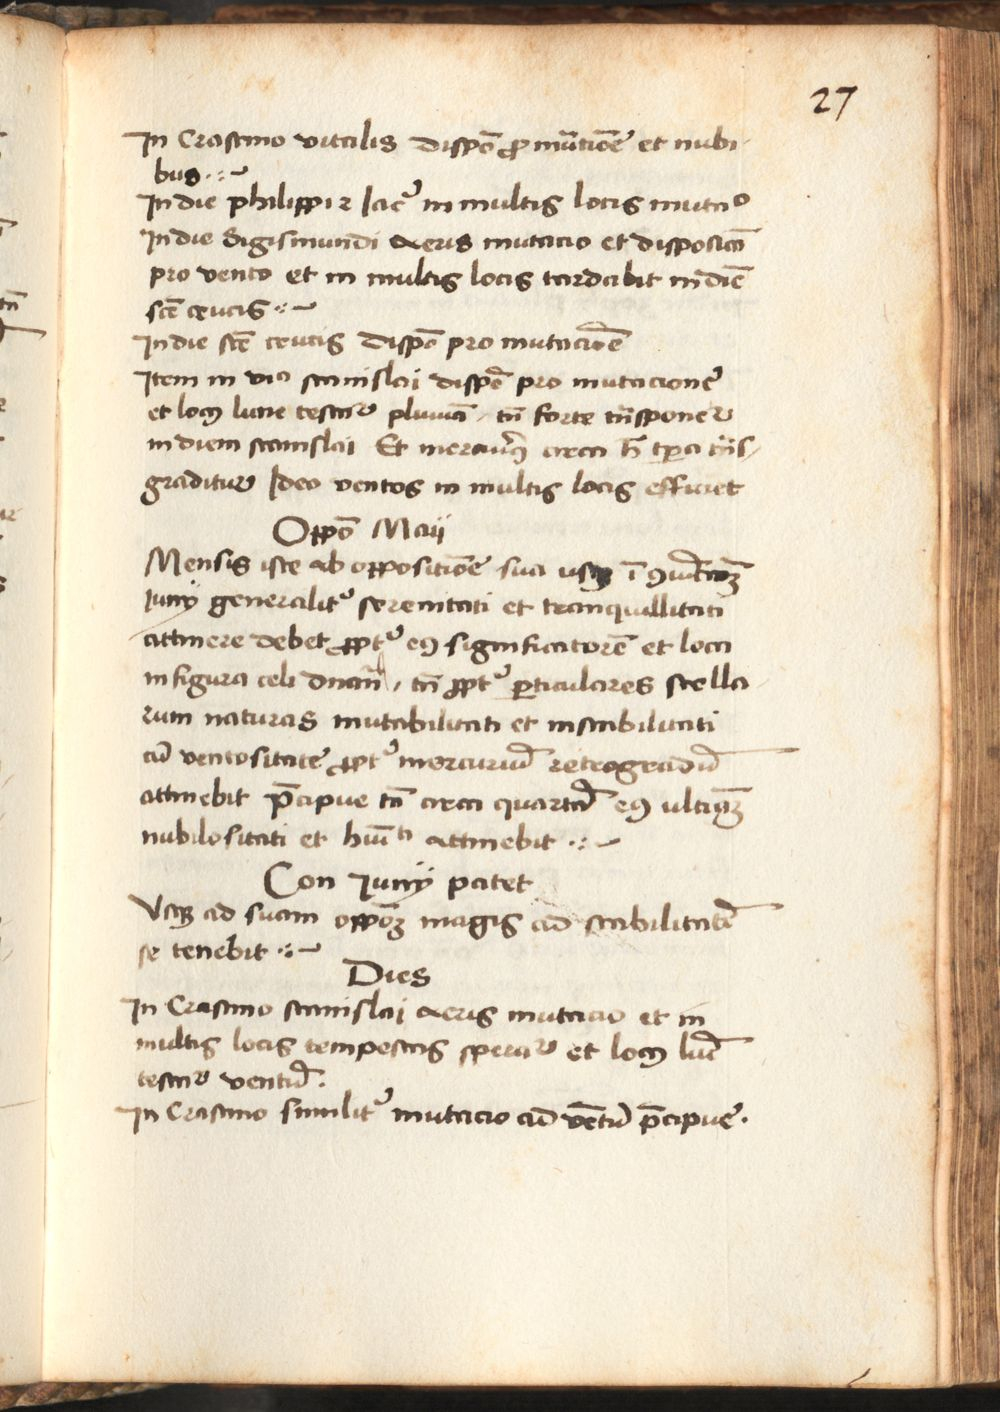 27
In Crastino vitalis dispō ꝓ mūtiōe et nubi-
bus
In die philippi ⁊ Iac' in multis locis mutaᵒ
In die Sigismundi aeris mutacio et disposicō
pro vento et in multis locis tardabit in diē
scē crucis
In die scē crucis dispō pro mutaciōe
Item in via stanislai dispō pro mutacione
et locꝰ lune testatur pluviā, tn̄ forte trāsponer
in diem stanislai Et mercuriꝰ circa h̄ tꝑa trās-
graditur Ideo ventos in multis locis efficiet
Oppō Maij
Mensis iste ab oppositiōe sua usqꝫ ī
Iunij generalitꝰ serenitati et tranquillitati
attinere debet ꝓptꝰ eiꝰ significatorē et loca
in figura celi dnān, tn̄ ꝓptꝰ ꝑticulares stella-
rum naturas mutabilitati et instabilitati
cū ventositate ꝓptꝰ mercuriū retrogradū
attinebit p̄cipue tn̄ circa quartā eiꝰ ultimā
nubilositati et humᵗⁱ attinebit
Con Iunij patet
Usqꝫ ad suam oppōꝫ magis ad stabilitatē
se tenebit
Dies
In Crastino stanislai aeris mutacio et in
multis locis tempestas speratur et locꝰ lūe
testatur ventū.
In Crastino similitꝰ mutacio ad vētū p̄cipue.